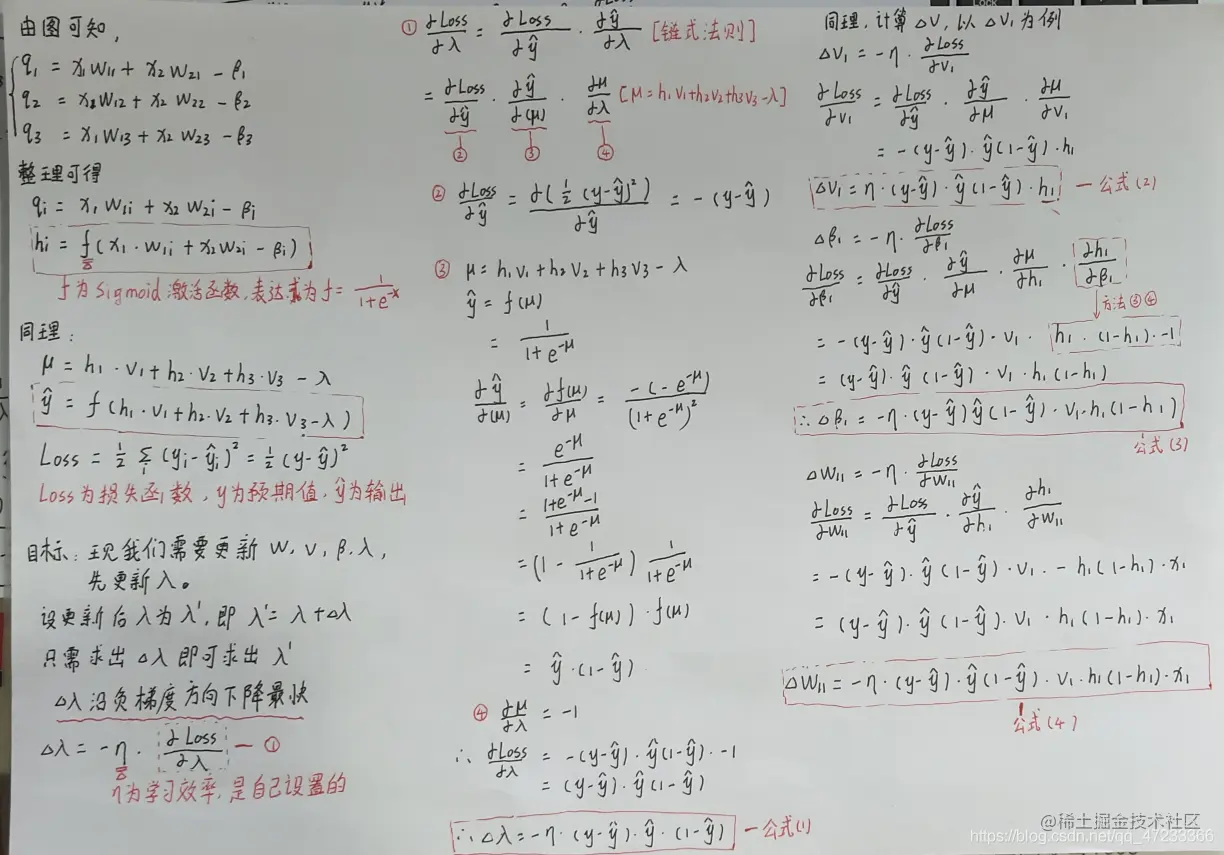 由图可知,
q₁ = x₁w₁₁ + x₂w₂₁ - β₁
q₂ = x₁w₁₂ + x₂w₂₂ - β₂
q₃ = x₁w₁₃ + x₂w₂₃ - β₃
整理可得
qi = x₁w₁i + x₂w₂i - βi
hi = f(x₁·w₁i + x₂w₂i - βi)
f为Sigmoid激活函数,表达式为f = 1/(1+e^-x)
同理:
μ = h₁·v₁ + h₂·v₂ + h₃·v₃ - λ
ŷ = f(h₁·v₁ + h₂·v₂ + h₃·v₃ - λ)
Loss = 1/2 Σi (yi - ŷi)² = 1/2 (y-ŷ)²
Loss为损失函数,y为预期值,ŷ为输出
目标:现我们需要更新 w, v, β, λ,
先更新λ。
设更新后λ为λ',即 λ' = λ + Δλ
只需求出 Δλ 即可求出 λ'
Δλ沿负梯度方向下降最快
Δλ = -η · ∂Loss/∂λ — ①
η为学习效率,是自己设置的
① ∂Loss/∂λ = ∂Loss/∂ŷ · ∂ŷ/∂λ [链式法则]
= ∂Loss/∂ŷ · ∂ŷ/∂(μ) · ∂μ/∂λ [μ = h₁v₁+h₂v₂+h₃v₃-λ]
② ③ ④
② ∂Loss/∂ŷ = ∂(1/2 (y-ŷ)²)/∂ŷ = -(y-ŷ)
③ μ = h₁v₁ + h₂v₂ + h₃v₃ - λ
ŷ = f(μ)
= 1/(1+e^-μ)
∂ŷ/∂(μ) = ∂f(μ)/∂μ = -(-e^-μ)/(1+e^-μ)²
= e^-μ/(1+e^-μ)
= (1+e^-μ-1)/(1+e^-μ)
= (1 - 1/(1+e^-μ)) 1/(1+e^-μ)
= (1-f(μ))·f(μ)
= ŷ·(1-ŷ)
④ ∂μ/∂λ = -1
∴ ∂Loss/∂λ = -(y-ŷ)·ŷ(1-ŷ)·-1
= (y-ŷ)·ŷ(1-ŷ)
∴ Δλ = -η·(y-ŷ)·ŷ·(1-ŷ) — 公式(1)
同理,计算ΔV,以ΔV₁为例
ΔV₁ = -η · ∂Loss/∂v₁
∂Loss/∂v₁ = ∂Loss/∂ŷ · ∂ŷ/∂μ · ∂μ/∂v₁
= -(y-ŷ)·ŷ(1-ŷ)·h₁
ΔV₁ = η·(y-ŷ)·ŷ(1-ŷ)·h₁ — 公式(2)
Δβ₁ = -η · ∂Loss/∂β₁
∂Loss/∂β₁ = ∂Loss/∂ŷ · ∂ŷ/∂μ · ∂μ/∂h₁ · ∂h₁/∂β₁
方法③④
= -(y-ŷ)·ŷ(1-ŷ)·v₁· h₁·(1-h₁)·-1
= (y-ŷ)·ŷ(1-ŷ)·v₁·h₁(1-h₁)
∴ Δβ₁ = -η·(y-ŷ)ŷ(1-ŷ)·v₁·h₁(1-h₁)
公式(3)
ΔW₁₁ = -η · ∂Loss/∂W₁₁
∂Loss/∂W₁₁ = ∂Loss/∂ŷ · ∂ŷ/∂h₁ · ∂h₁/∂W₁₁
= -(y-ŷ)·ŷ(1-ŷ)·v₁·-h₁(1-h₁)·x₁
= (y-ŷ)·ŷ(1-ŷ)·v₁·h₁(1-h₁)·x₁
ΔW₁₁ = -η·(y-ŷ)·ŷ(1-ŷ)·v₁·h₁(1-h₁)·x₁
公式(4)
@稀土掘金技术社区
https://blog.csdn.net/qq_47233366